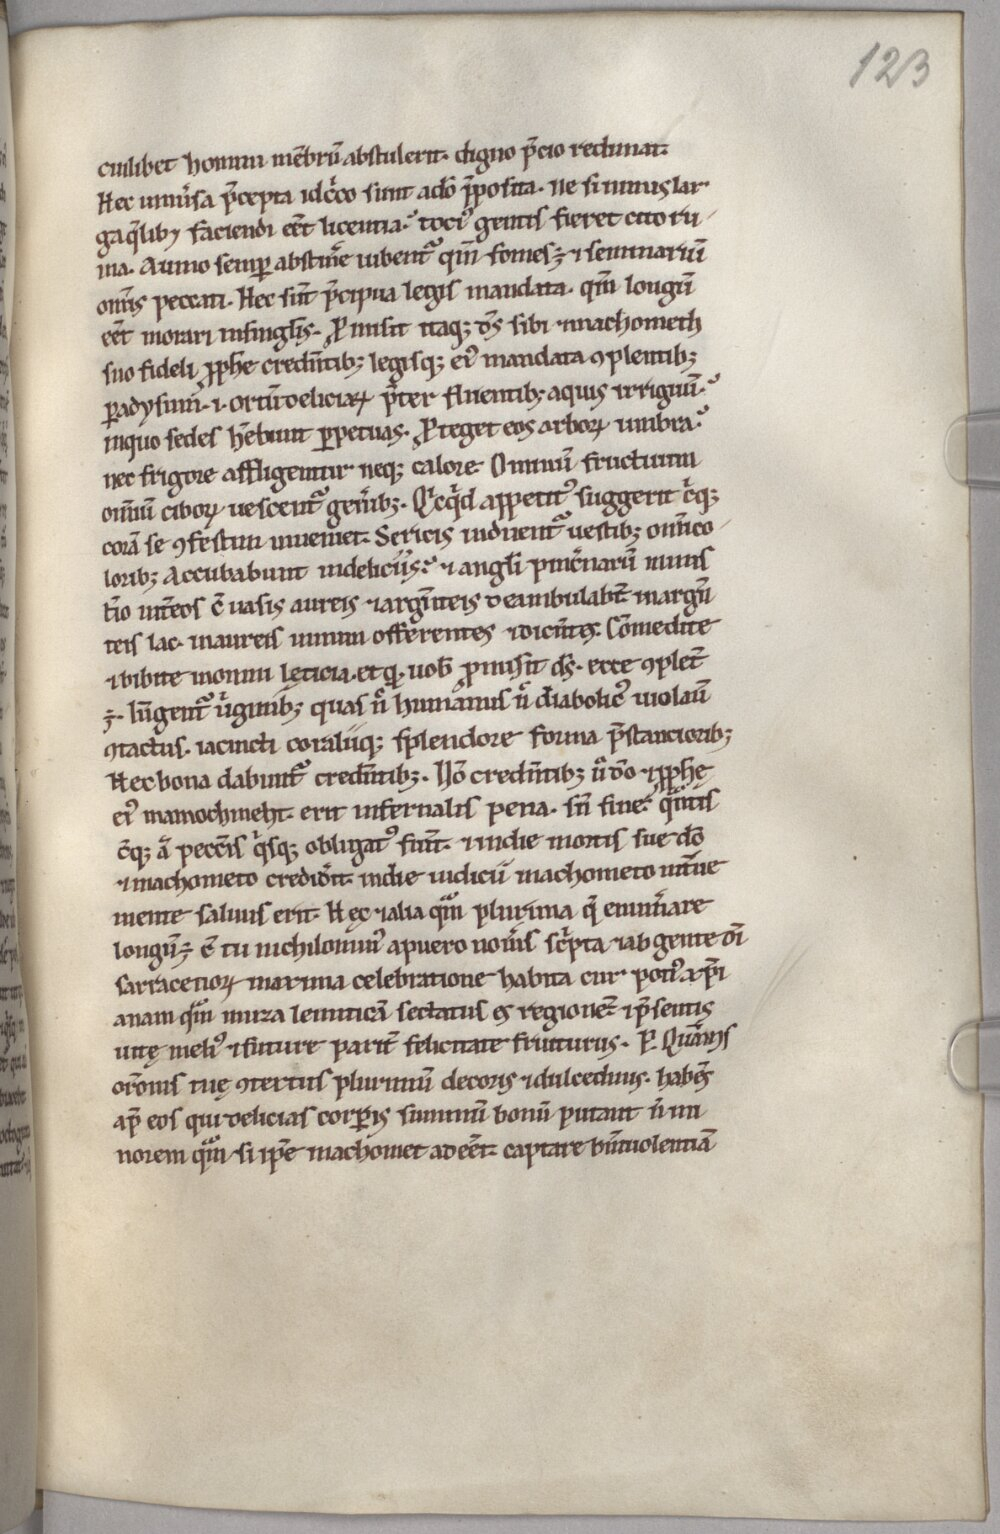 123
cuilibet homini mēbrū abstulerit. digno p̄cio redimat.
Hec uniu̾sa p̄cepta idc̓co sunt a dō p̄posita. ne si in nuis lar
ga q̄libꝫ faciendi eēt licentia. toci᾽ gentis fieret cito ru
ina. A uino semp abstine̾ iubent᾽ qm̄ fomes ē ⁊ seminariū
om̄is peccati. Hec sūt p̄cipua legis mandata. qm̄ longū
eēt morari in singlis. Promisit itaqꝫ ds̄ sibi ⁊ machometh
suo fideli pphe credn̄tibꝫ legisqꝫ ei᾽ mandata ꝯplentibꝫ
paradysum .i. ortū deliciaꝝ p̄terfluentibꝫ aquis irriguū.
in quo sedes hēbunt ppetuas. Proteget eos arboꝝ umbra.
nec frigore affligentur neqꝫ calore. Omniū fructuum
omniū ciboꝝ uescent᾽ gen̄ibꝫ. Qicqid appetit᾽ suggerit c̓qꝫ
corā se ꝯfestim inueniet. Sericis induent᾽ uestibꝫ omīco
loribꝫ. Accubabunt in deliciis. ⁊ angli pincn̄arū minis
tio int̄ eos c̄ uasis aureis ⁊ argn̄teis deambulabt̄ in argn̄
teis lac. in aureis uinum offerentes ⁊ dicn̄tes. Comedite
⁊ bibite in omni lęticia. et q̄ uob̄ promisit ds̄. ecce ꝯplet̄
ē. Iūgent᾽ u̓ginibꝫ quas n̄ humanus n̄ diabolic᾽ uiolauit
ꝯtactus. iacincti coraliiqꝫ splendore forma p̄stancioribꝫ
Hec bona dabunt᾽ credn̄tibꝫ. Nō credn̄tibꝫ u̾ dō ⁊ pphę
ei᾽ mamochmeht. erit infernalis pena. sn̄ fine. qn̄tis
c̄qꝫ ā peccīs q̓sqꝫ obligat᾽ fuit̄. ⁊ in die mortis sue dō
⁊ machometo credidit̄. in die iudicii machometo int̄ue
niente saluus erit. Hęc ⁊ alia qm̄ plurima q̄ enum̄are
longū ē. c̄ tu nichilomin᾽ a puero nouis sc̓pta ⁊ ab gente oī
sarracenoꝝ maxima celebratione habita cur poti᾽ xp̄i
anam qm̄ muzalemiticā sectatus es regionē. ⁊ p̄sentis
uitę meli᾽ ⁊ future parit̄ felicitate fruiturus. P. Quāuis
orōnis tuę ꝯtextus plurimū decoris ⁊ dulcedinis. habēs
ap̄ eos qui delicias corpis summū bonū putant n̄ mi
norem qm̄ si ipē machomet adeēt captare bn̄iuolentiā